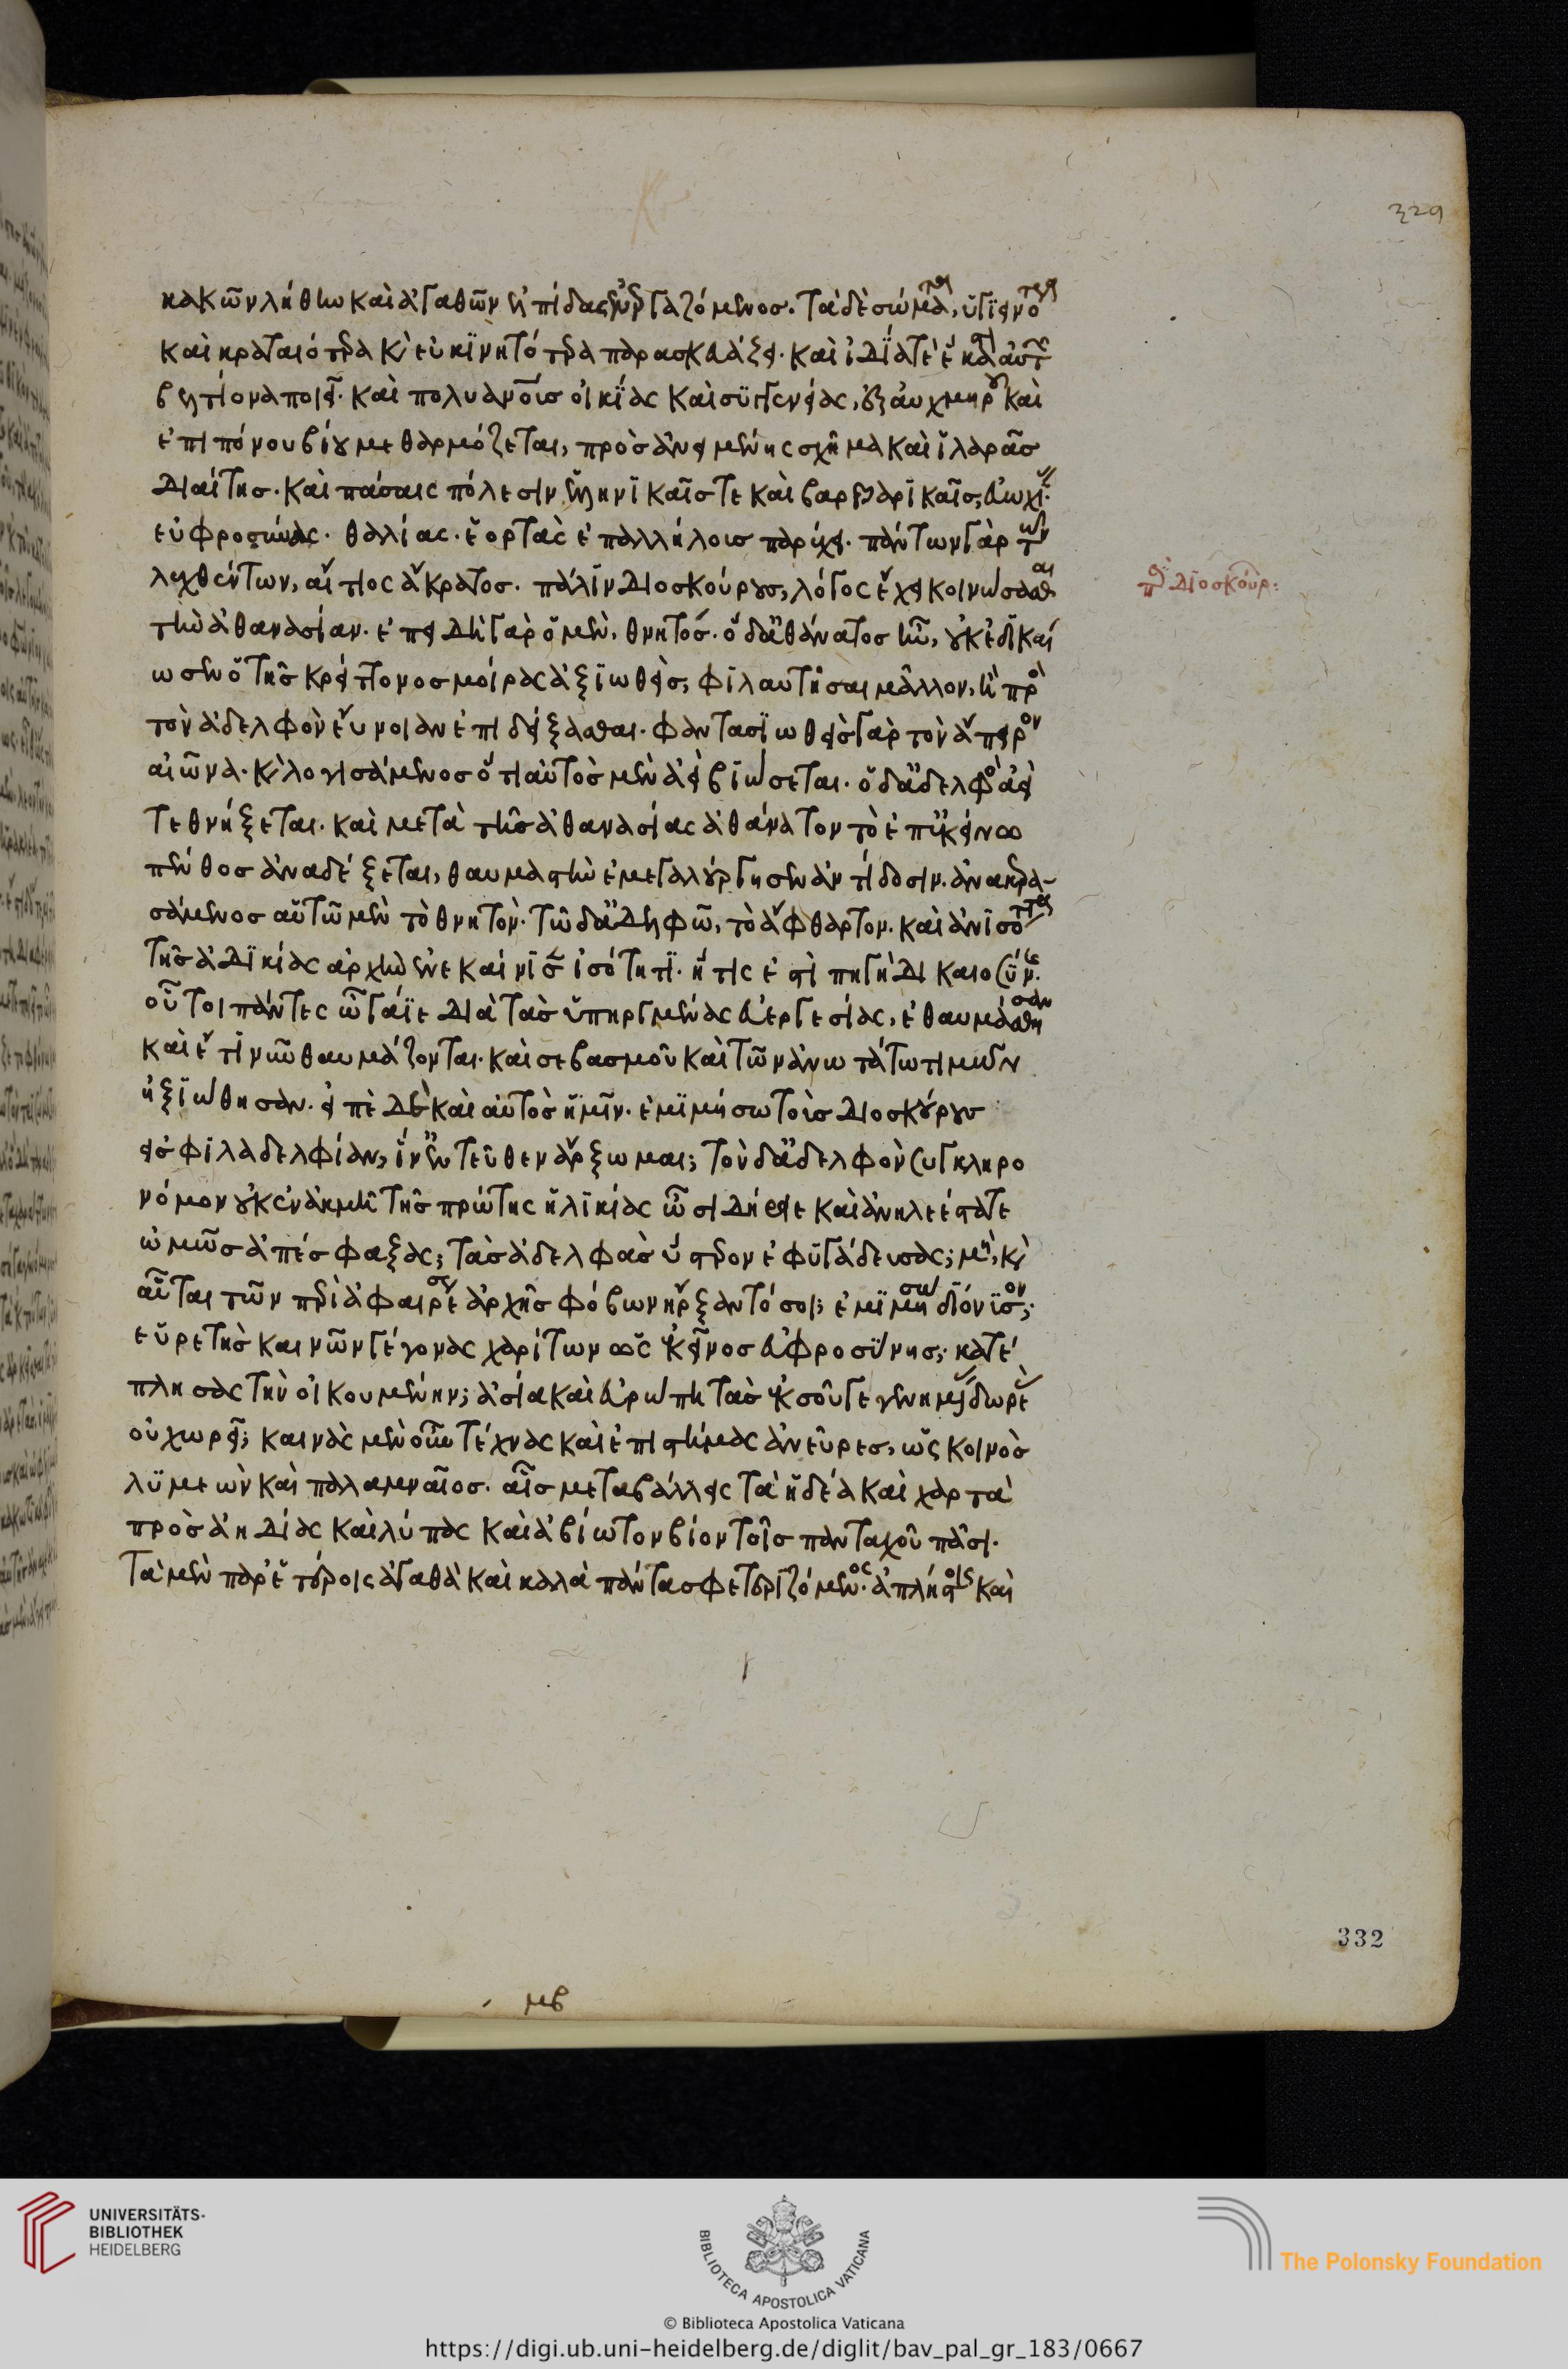 κακῶν λήθην καὶ ἀγαθῶν ἐλπίδας ἐνεργαζόμενος. τὰ δὲ σώματα, ὑγιεινότερα
καὶ κραταιότερα κ̀ εὐκινητότερα παρασκευάζει. καὶ ἰδίᾳ τὲ ἕκαστον
βελτίονα ποιεῖ. καὶ πολυανους οἰκίας καὶ συγγενείας, ἐξ αὐχμηροῦ καὶ
ἐπιπόνου βίου μεθαρμόζεται, πρὸς ἀνειμένης σχῆμα καὶ ἱλαρᾶς
διαίτης. καὶ πάσαις πόλεσιν ἑλληνικαῖς τε καὶ βαρβαρικαῖς, εὐωχίας.
εὐφροσύνας. θαλίας. ἑορτὰς ἐπαλλήλοις παρέχει. πάντων γὰρ τῶν
λεχθέντων, αἴτιος ἄκρατος. πάλιν διοσκούρους, λόγος ἔχει κοινώσασθαι
τὴν ἀθανασίαν. ἐπειδὴ γὰρ ὁ μὲν, θνητός. ὁ δ' ἀθάνατος ἦν, οὐκ ἐδικαί
ωσεν ὁ τῆς κρείττονος μοίρας ἀξιωθεὶς, φιλαυτῆσαι μᾶλλον, ἢ πρὸς
τὸν ἀδελφὸν εὔνοιαν ἐπιδείξασθαι. φαντασιωθεὶς γὰρ τὸν ἄπειρον
αἰῶνα. κ̀ λογισάμενος ὅτι αὐτὸς μὲν ἀεὶ βιώσεται. ὁ δ' ἀδελφὸς ἀεὶ
τεθνήξεται. καὶ μετὰ τῆς ἀθανασίας ἀθάνατον τὸ ἐπ' ἐκείνῳ
πένθος ἀναδέξεται, θαυμαστὴν ἐμεγαλούργησεν ἀντίδοσιν. ἀνακερα-
σάμενος αὑτῶ μὲν τὸ θνητόν. τῶ δ' ἀδελφῶ, τὸ ἄφθαρτον. καὶ ἀνισότητα
τῆς ἀδικίας ἀρχὴν
οὗτοι πάντες ὦ γάϊε διὰ τὰς ὑπηργμένας εὐεργεσίας, ἐθαυμάσθησαν
καὶ ἔτι νῦν θαυμάζονται. καὶ σεβασμοῦ καὶ τῶν ἀνωτάτω τιμῶν
ἠξιώθησαν. εἰπὲ δὴ καὶ αὐτὸς ἡμῖν. ἐμιμήσω τοὺς διοσκούρους
εἰς φιλαδελφίαν, ἵν' ἐντεῦθεν ἄρξωμαι; τὸν δ' ἀδελφὸν συγκληρο
νόμον οὐκ ἐν ἀκμῇ τῆς πρώτης ἡλικίας ὦ σιδήρειε καὶ ἀνηλεέστατε
ὠμῶς ἀπέσφαξας; τὰς ἀδελφὰς ὕστερον ἐφυγάδευσας; μὴ κ̀
αὗται τῶν περὶ ἀφαιρέσεως ἀρχῆς φόβων ἤρξαντό σοι; ἐμιμήσω διόνυσον;
εὑρετὴς καινῶν γέγονας χαρίτων ὡς ἐκεῖνος εὐφροσύνης; κατέ
πλησας τὴν οἰκουμένην; ἀσία καὶ εὐρώπη τὰς ἐκ σοῦ γεγενημένας δωρεὰς
οὐ χωρεῖ; καινὰς μὲν οὖν τέχνας καὶ ἐπιστήμας ἀνεῦρες, ὡς κοινὸς
λυμεὼν καὶ παλαμναῖος. αἷς μεταβάλλεις τὰ ἡδέα καὶ χαρτὰ
πρὸς ἀηδίας καὶ λύπας καὶ ἀβίωτον βίον τοῖς πανταχοῦ πᾶσι.
τὰ μὲν παρ' ἑτέροις ἀγαθὰ καὶ καλὰ πάντα σφετεριζόμενος. ἀπλήστοις καὶ
π͂ διοσκούρ:
329
332
μβ
UNIVERSITÄTS-
BIBLIOTHEK
HEIDELBERG
BIBLIOTECA APOSTOLICA VATICANA
The Polonsky Foundation
© Biblioteca Apostolica Vaticana
https://digi.ub.uni-heidelberg.de/diglit/bav_pal_gr_183/0667